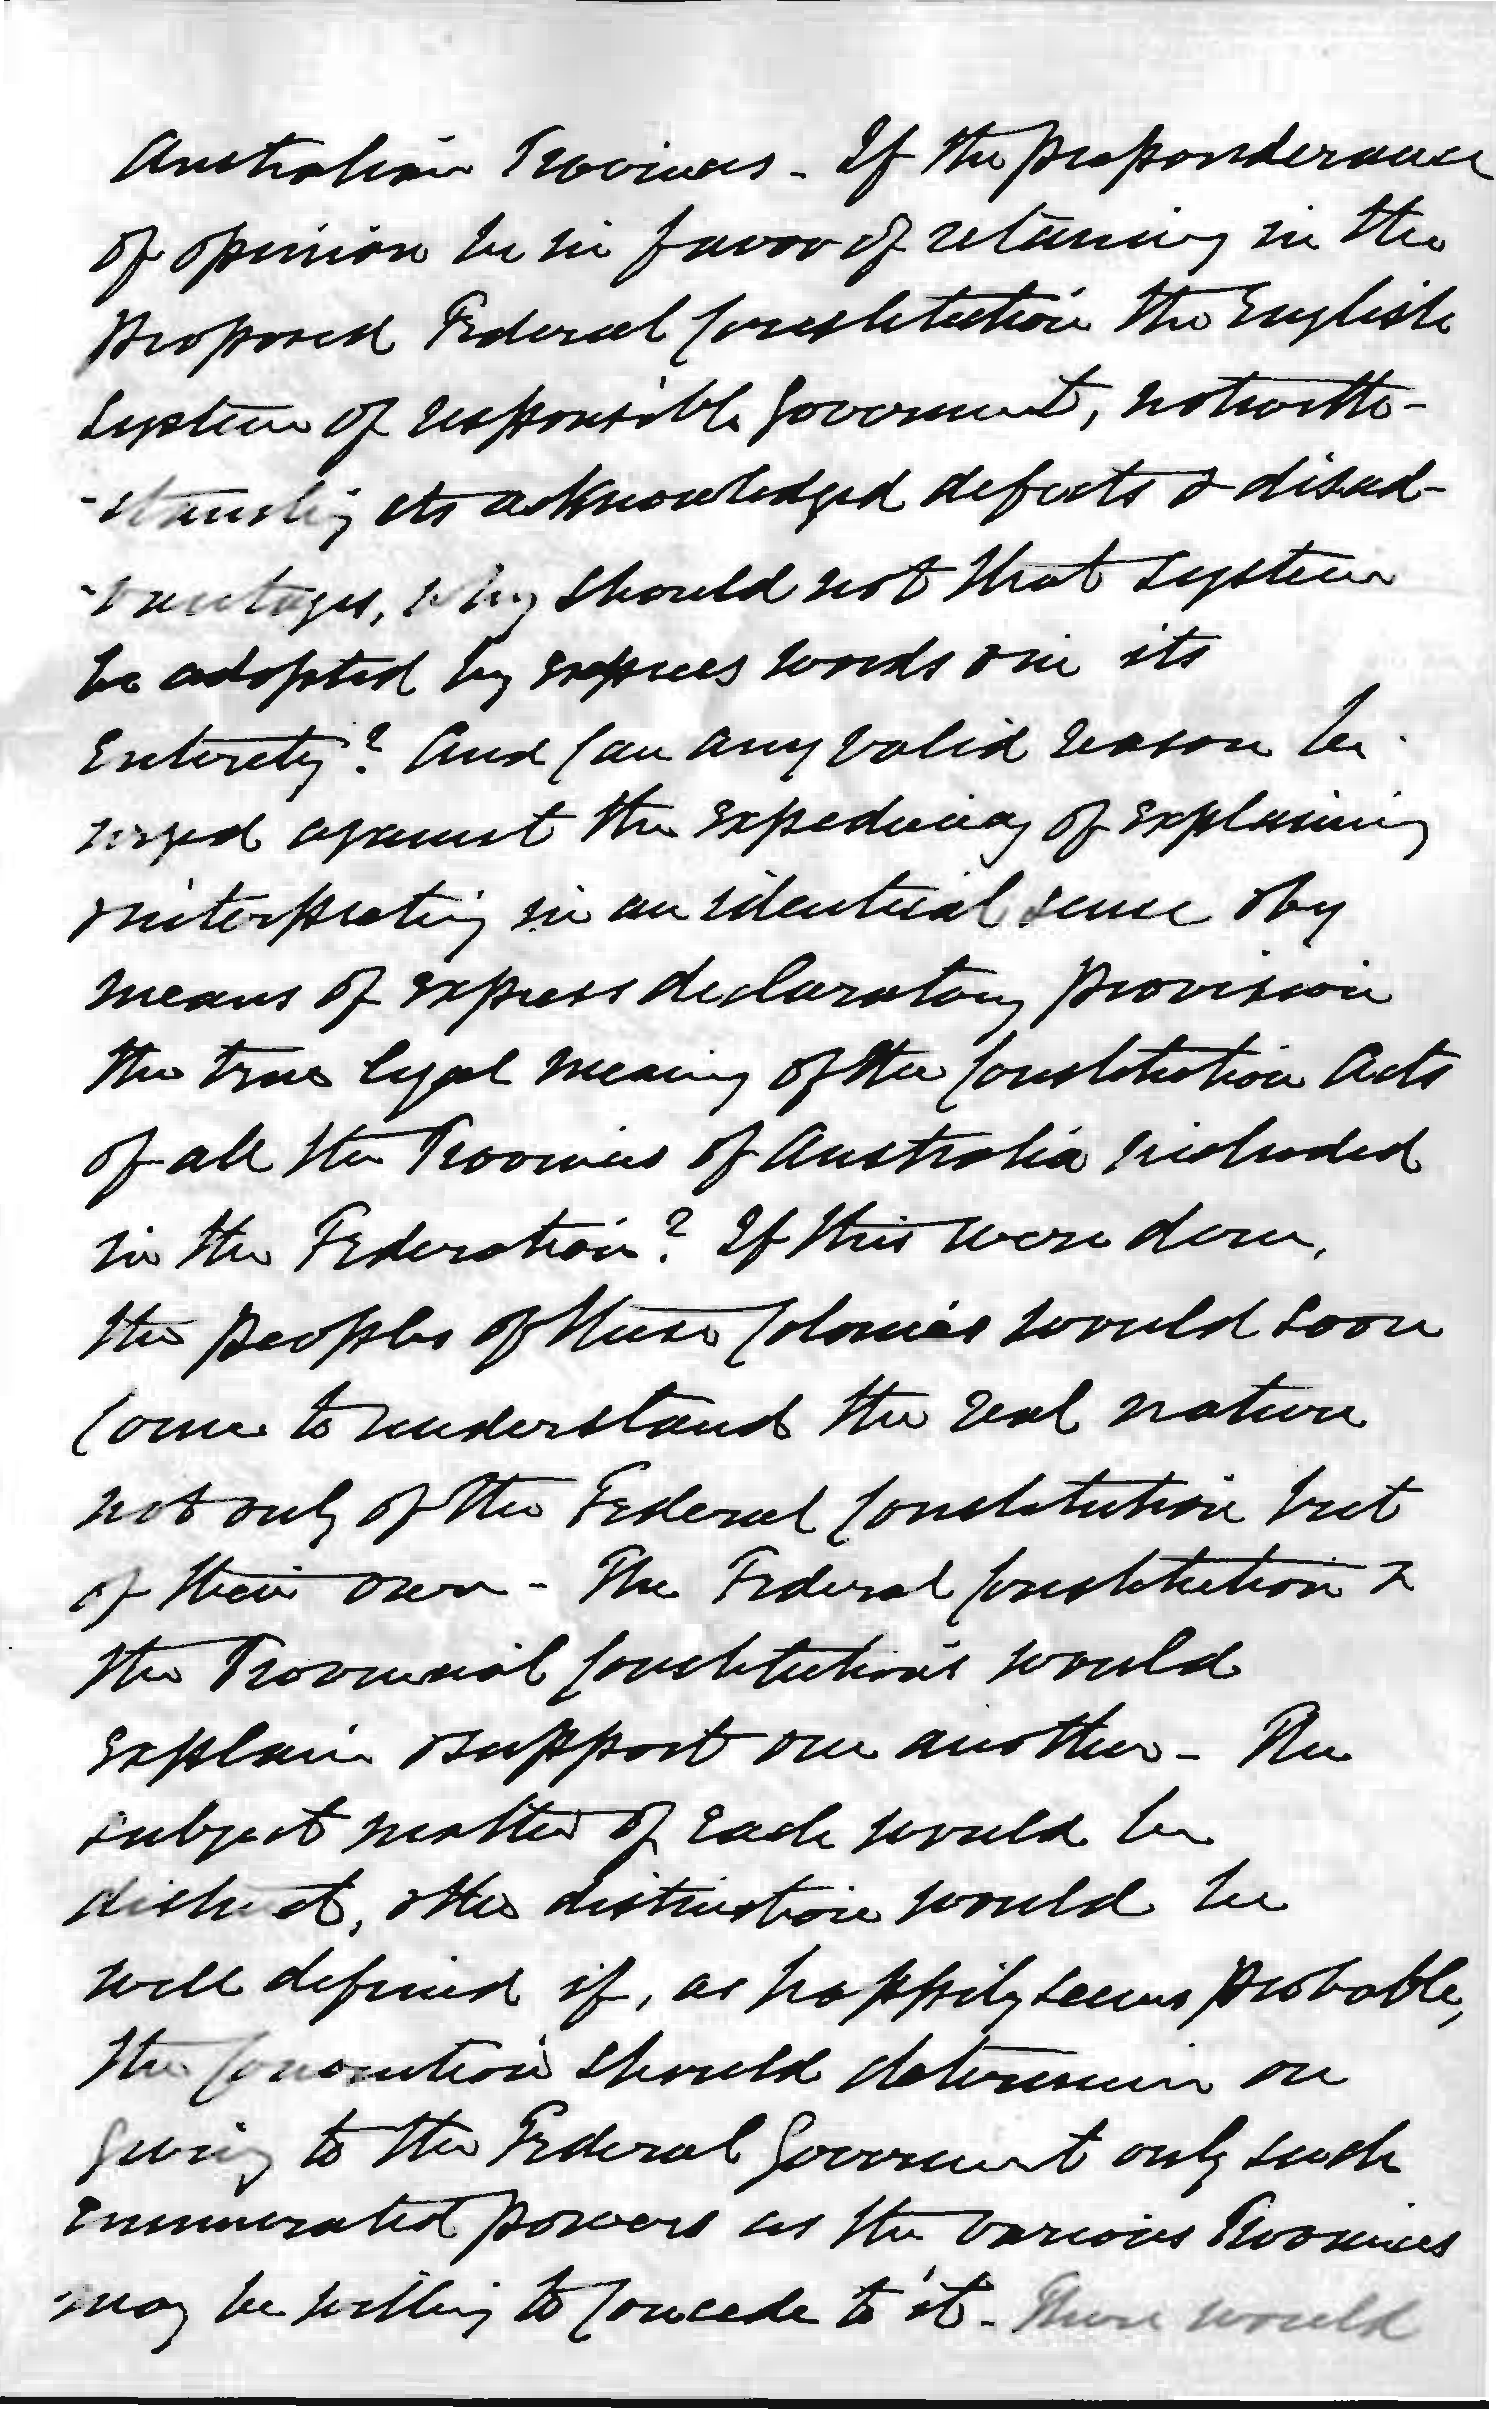 Australian Provinces - If the preponderance
of opinion be in favor of retaining in the
proposed Federal Constitution the English
system of responsible Government, notwith-
-standing its acknowledged defects & disad-
-vantages, why should not that system
be adopted by express words & in its
entirety? And can any valid reason be
urged against the expediency of explaining
& interpreting in an identical sense & by
means of express declaratory provision
the true legal meaning of the Constitution Acts
of all the Provinces of Australia included
in the Federation? If this were done,
the peoples of these Colonies would soon
come to understand the real nature
not only of the Federal Constitution but
of their own - The Federal Constitution &
the Provincial Constitutions would
explain & support one another - The
subject matter of each would be
distinct, & the distinction would be
well defined if, as happily seems probable,
the Convention should determine on
giving to the Federal Government only such
enumerated powers as the various Provinces
may be willing to concede to it - There would